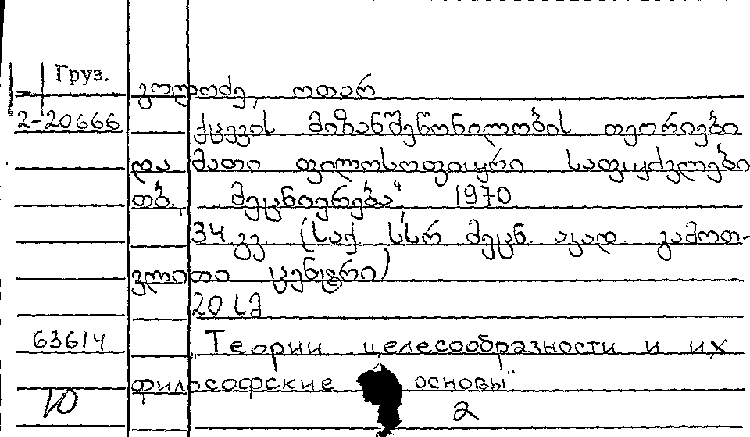 Груз.
ოთარ
2-20666
ქცევის მიზანშეწონილობის თეორიები
და მათი ფილოსოფიური საფუძვლები
თბ. „მეცნიერება" 1970
34 გვ. (საქ. სსრ მეცნ. აკად. გამოთ-
ვლითი ცენტრი)
63614
Теории целесообразности и их
философские основы"
2